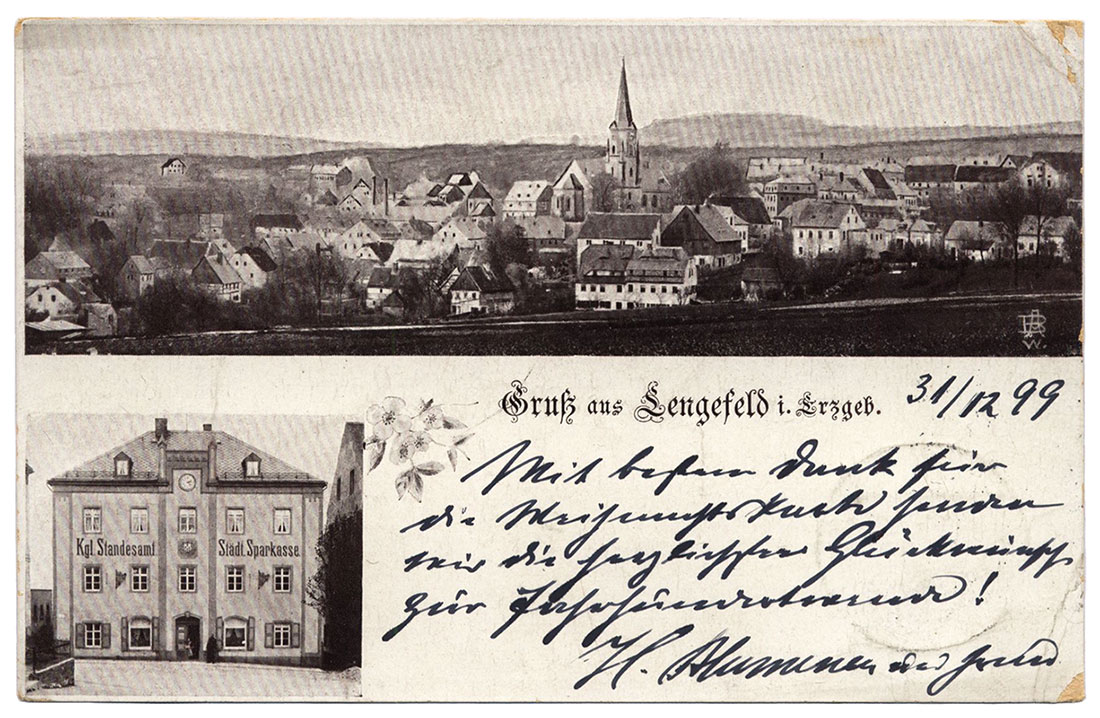 BR
W.
Gruß aus Lengefeld i. Erzgeb.
31/12 99
Kgl. Standesamt. Städt. Sparkasse
Mit bestem Dank für
die Weihnachtskarte senden
wir die herzlichsten Glückwünsche
zur Jahrhundertwende!
H. und